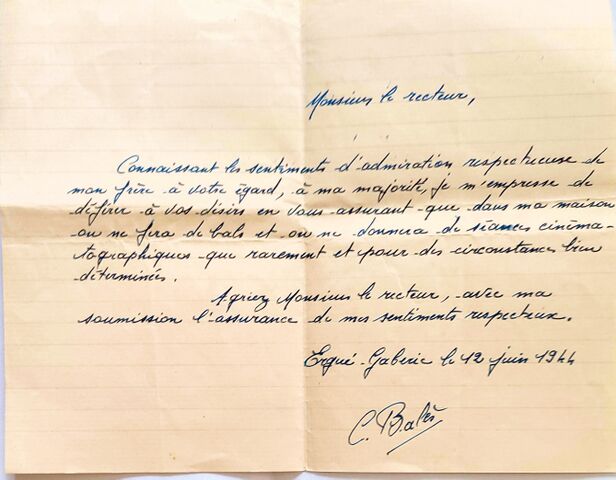 Monsieur le recteur,
Connaissant les sentiments d'admiration respectueuse de
mon frère à votre égard, à ma majorité, je m'empresse de
déférer à vos désirs en vous assurant que dans ma maison
on ne fera de bals et on ne donnera de séances cinéma-
tographiques que rarement et pour des circonstances bien
déterminées.
Agriez Monsieur le recteur, avec ma
soumission l'assurance de mes sentiments respectueux.
Ergué-Gabéric le 12 juin 1944
C. Balès